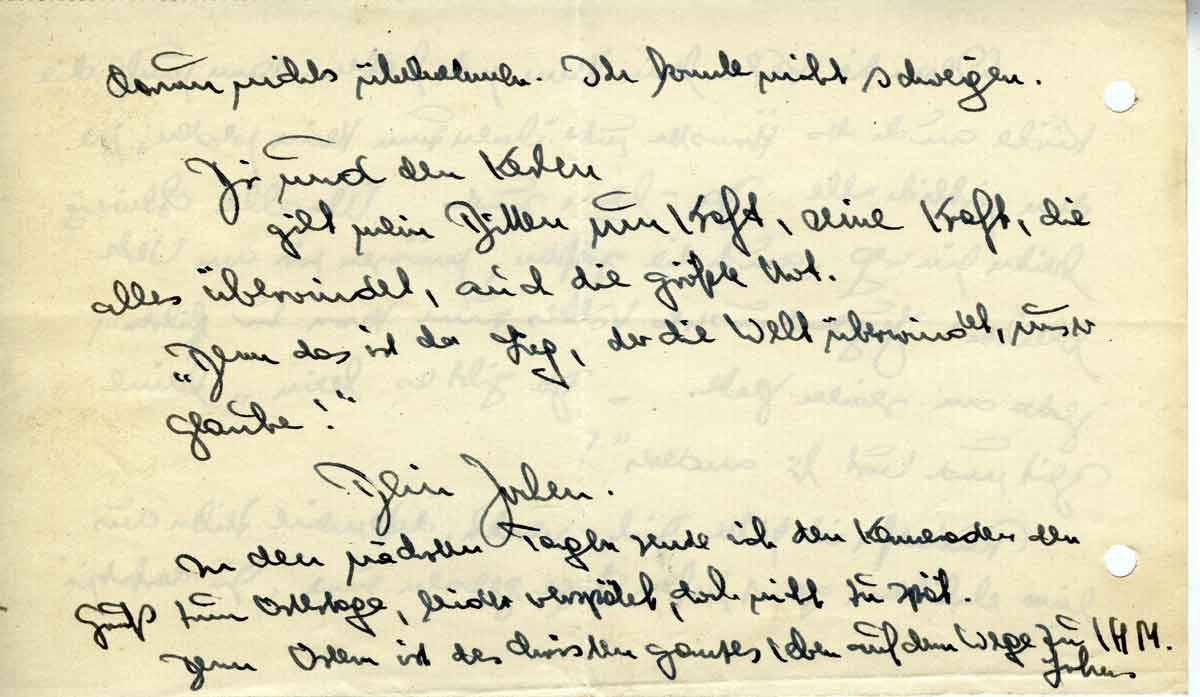 daran nichts überhehmen. Ich konnte nicht schweigen.
Dir und den
gilt mein Bitten um Kraft, eine Kraft, die
alles überwindet, auch die größte Not.
„Denn das ist der Sieg, der die Welt überwindet, unser
Glaube!“
Dein Jochen.
In den nächsten Tagen sende ich den Kameraden den
Gruß zum Ostertage, leider verspätet, doch nicht zu spät.
Denn Ostern ist des Christen ganzes Leben auf dem Wege zu IHM.
Jochen